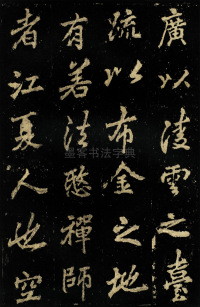 廣以凌雲之臺
疏以布金之地
有若法愍禪師
者江夏人也空
墨客书法字典